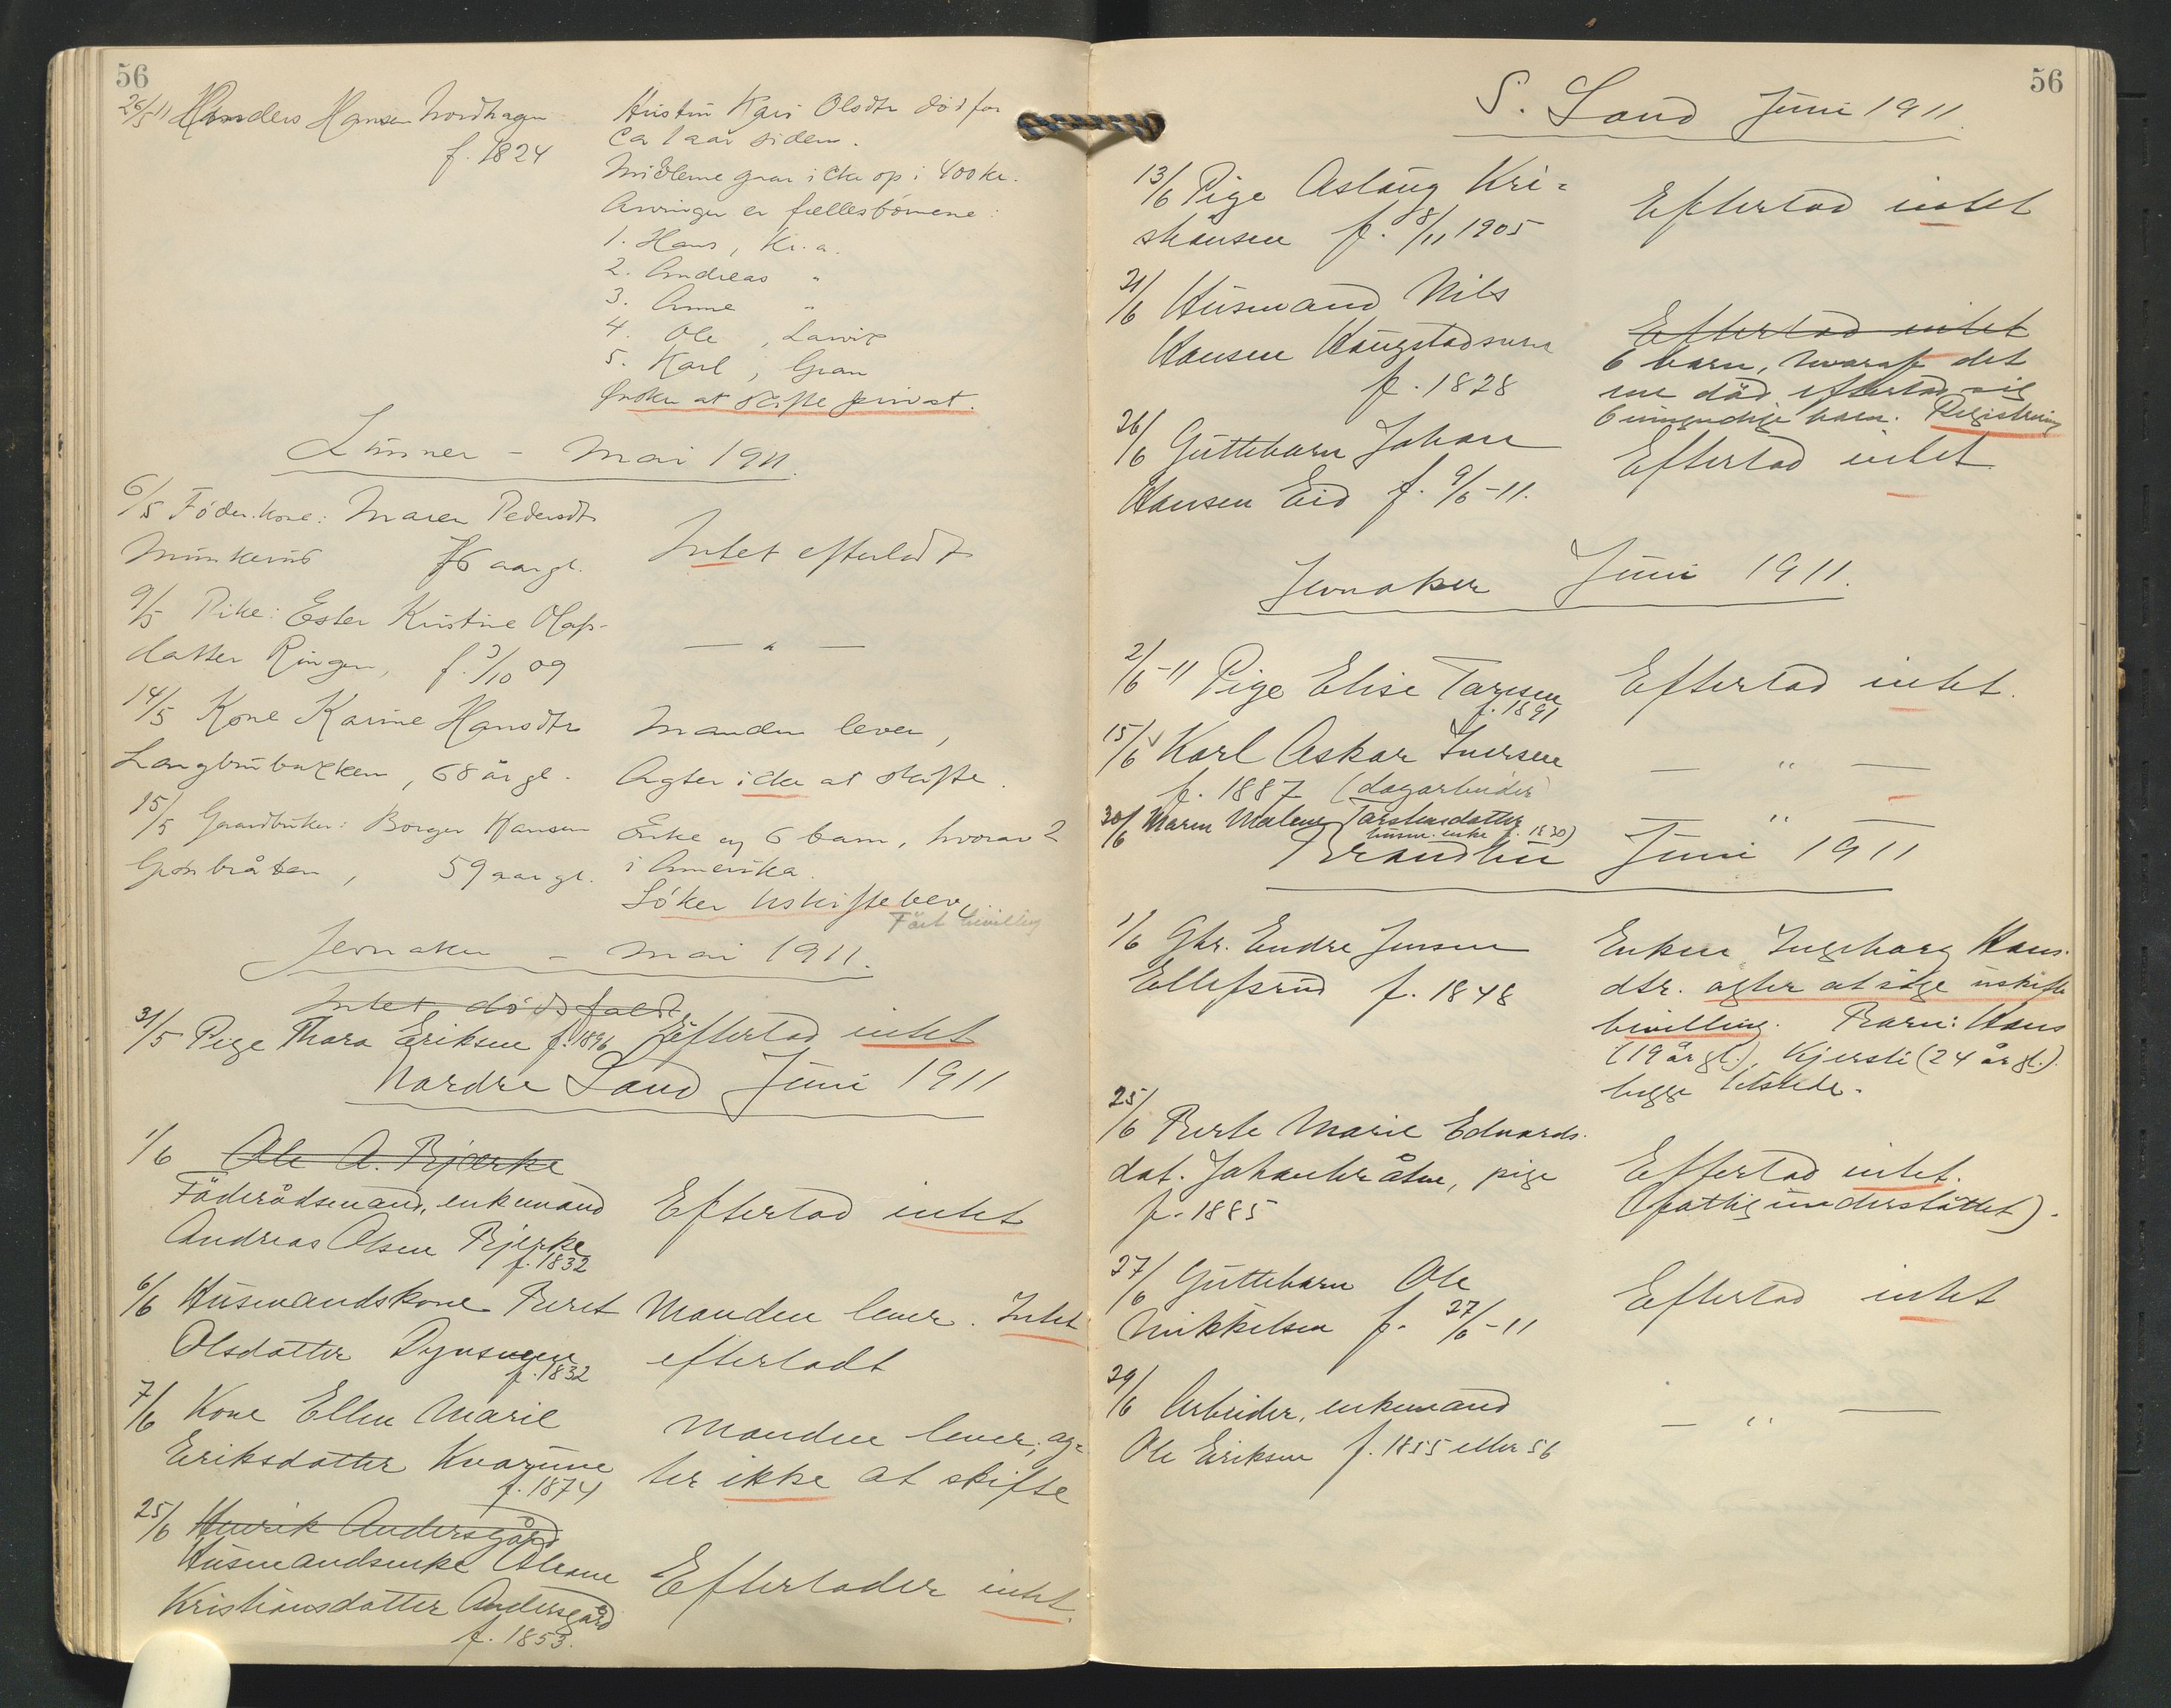 56
26/5 11 Anders Hansen Nordhagen
f. 1824
Hustru Kari Olsdtr død for
ca 1 aar siden.
Midlerne gaar icke op i 400 kr.
Arvinger er fællesbørnene:
1. Hans, Kr.a.
2. Andreas "
3. Anne "
4. Ole , Larvik
5. Karl , Gran
Ønsker at skifte privat.
Lunner - Mai 1911.
6/5 Föder.kone: Maren Pedersdtr
Munkerud 76 aar gl.
Intet efterladt
9/5 Pike: Ester Kristine Olafs-
datter Ringen, f. 3/10 09
— " —
14/5 Kone Karine Hansdtr
Langbrubakken, 68 år gl.
Manden lever,
Agter icke at skifte.
15/5 Gaardbruker: Borger Hansen
59 aar gl.
Enke og 6 barn, hvorav 2
i Amerika.
Söker uskiftebev.
Fået bevilling
Jevnaker - Mai 1911.
Intet dödsfald
31/5 Pige Thora Eriksen f. 1896 Efterlod intet
Nordre Land Juni 1911
1/6 Ole A. Bjørke
Föderådsmand, enkemand
Andreas Olsen Bjerke
f. 1832
Efterlod intet
6/6 Husmandskone Beret
Olsdatter
f. 1832
Manden lever. Intet
efterladt
7/6 Kone Ellen Marie
Eriksdatter Kvarnne
f. 1874
Manden lever; ag-
ter ikke at skifte
25/6 Henrik Andersgård
Husmandsenke Oleane
Kristiansdatter Andersgård
f. 1853.
Efterlader intet.
56
S. Land Juni 1911.
13/6 Pige Aslaug Kri-
stiansen f. 8/11 1905
Efterlod intet
21/6 Husmand Nils
Hansen Haugstadsveen
f. 1828
Efterlod intet
6 barn, hvoraf det
ene död efterlod sig
6 umyndige barn. Registrering
26/6 Guttebarn Johan
Hansen Eid f. 9/6-11.
Efterlod intet
Jevnaker Juni 1911.
2/6-11 Pige Elise Larsen
f. 1891
Efterlod intet.
15/6 Karl Oskar Iversen
f. 1887 (dagarbeider)
— " —
30/6 Maren Malene Torstensdatter
husm. enke f. 1830)
— " —
Brandbu Juni 1911
1/6 Gbr. Endre Jensen
Ellefsrud f. 1848
Enken Ingeborg Hans-
dtr. agter at söge uskifte
bevilling. Barn: Hans
(19 år gl.), Kjersti (24 år gl.).
begge tilstede.
25/6 Berte Marie Edvards-
dat. Johanbråten, pige
f. 1885
Efterlod intet.
(fattigunderstöttet).
27/6 Guttebarn Ole
Mikkelsen f. 27/6-11
Efterlod intet
29/6 Arbeider, enkemand
Ole Eriksen f. 1855 eller 56
— " —